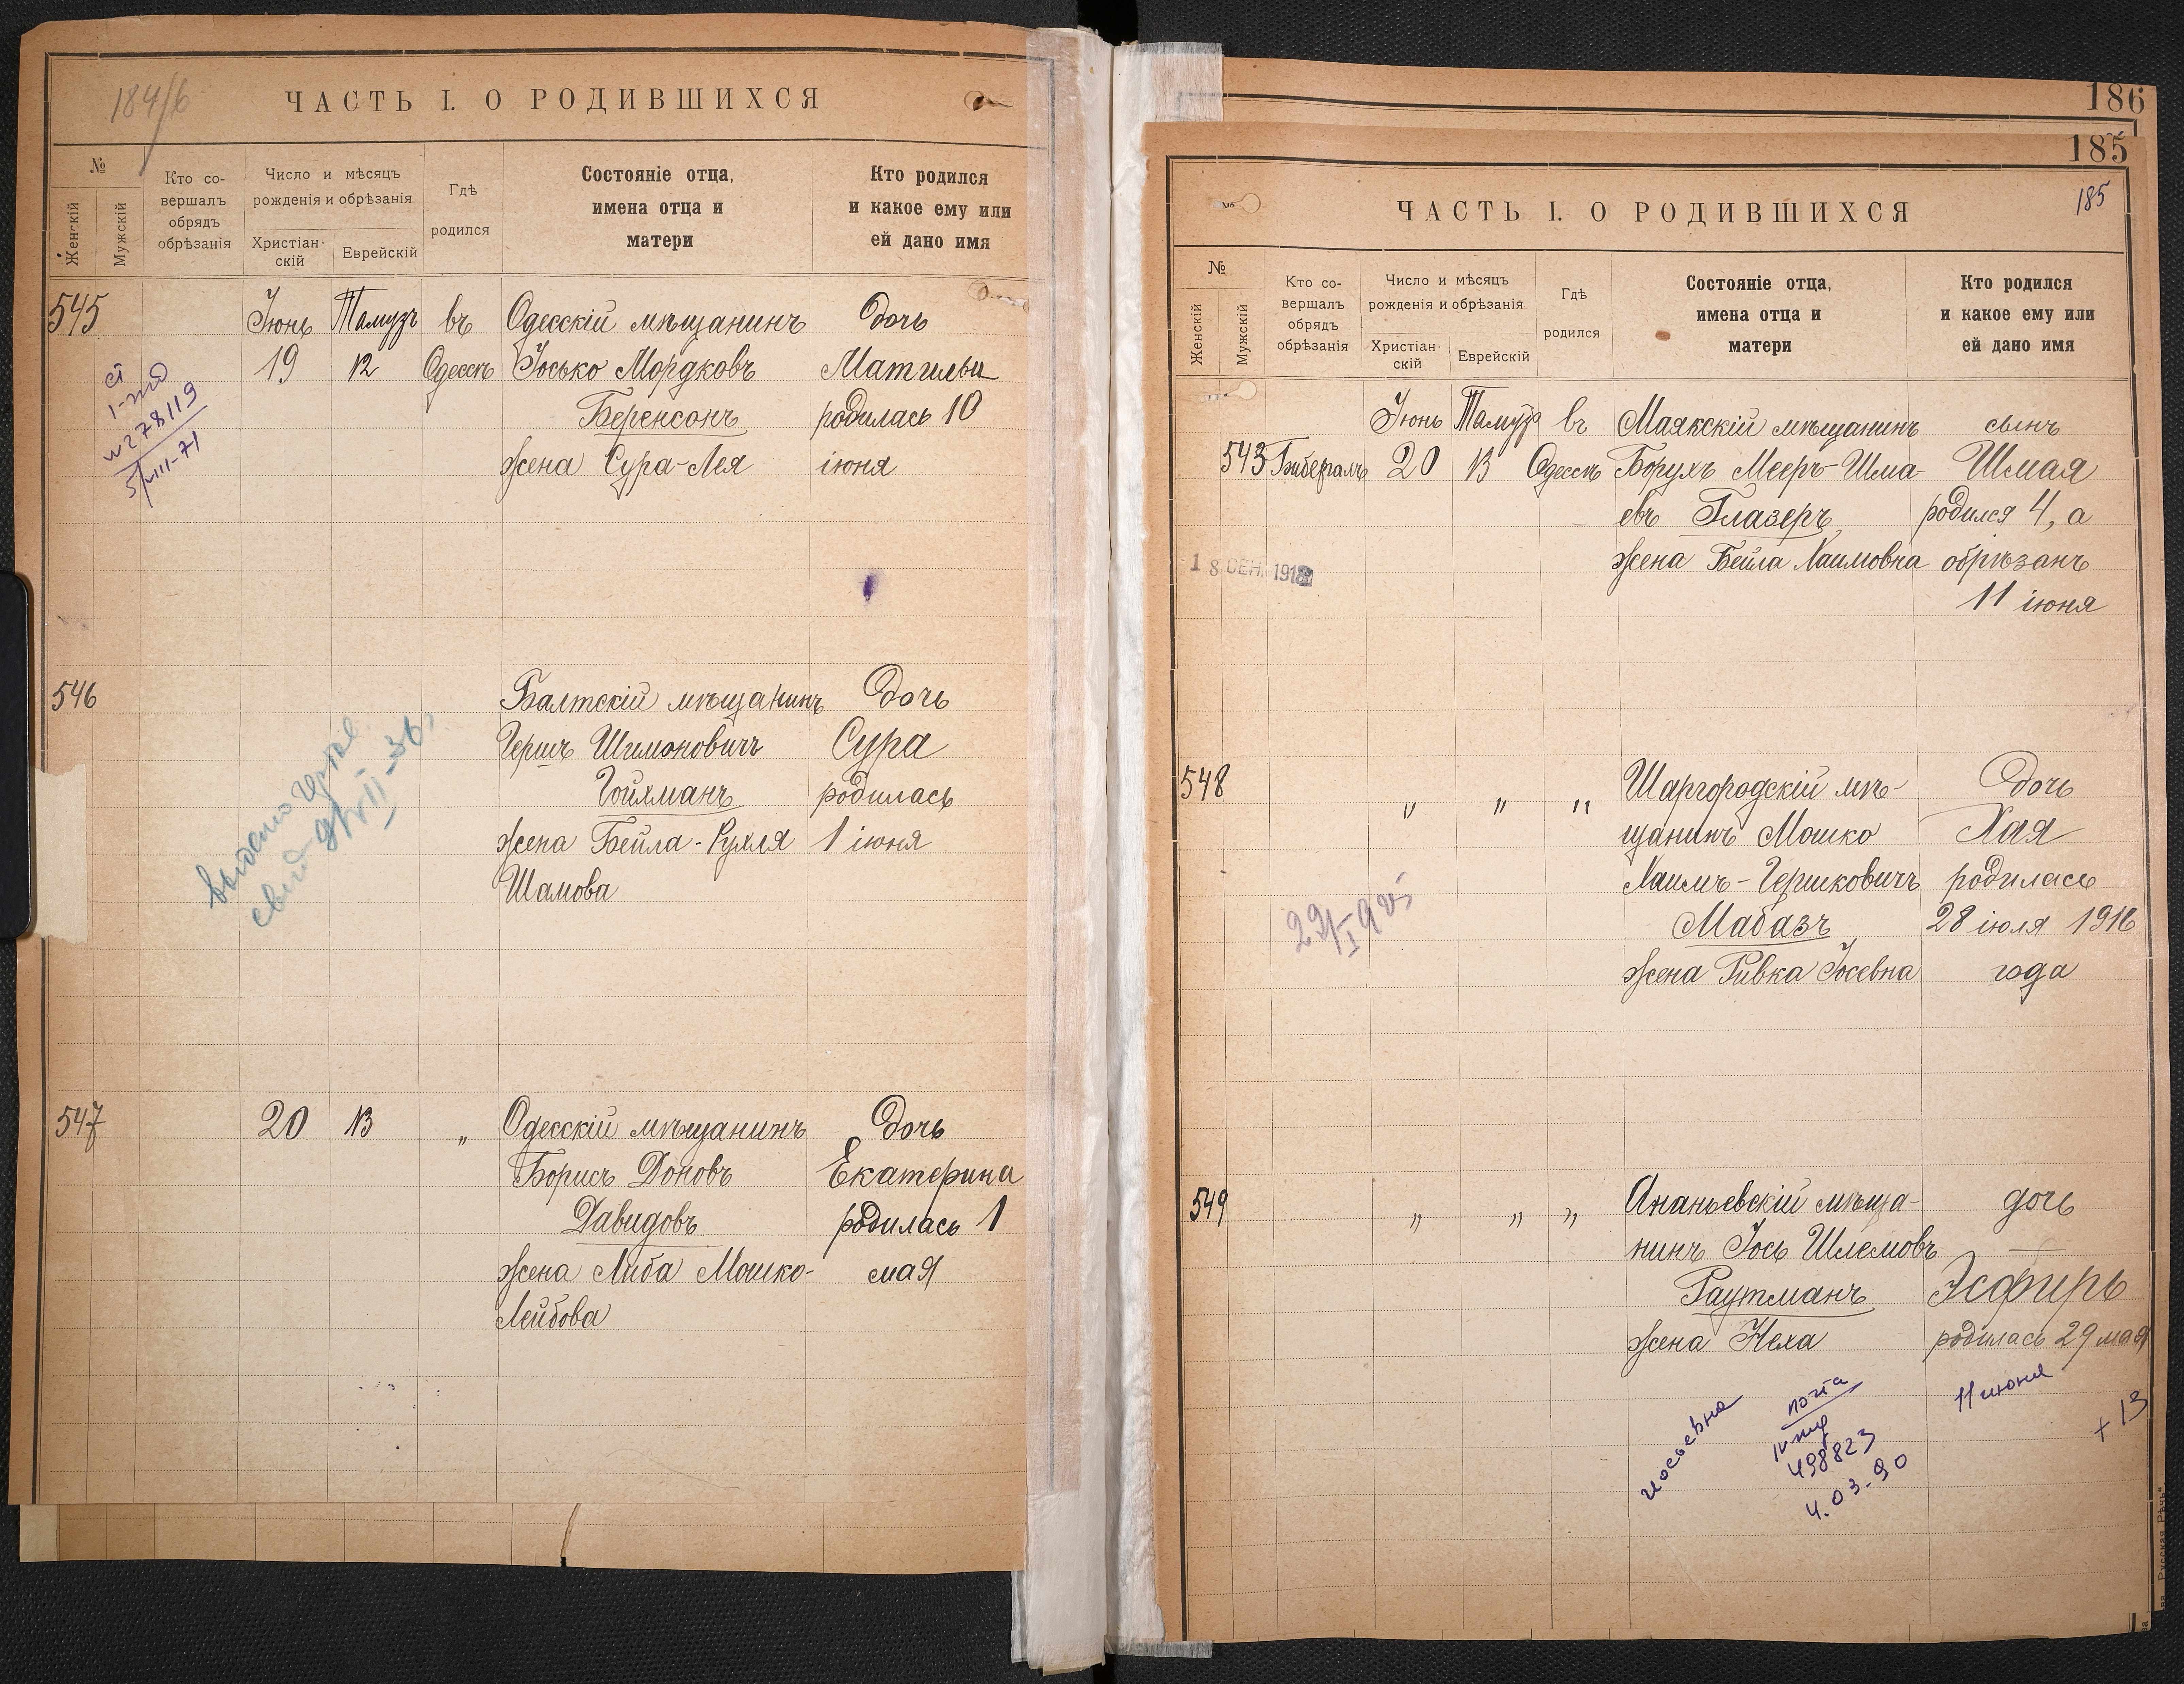 184/б
ЧАСТЬ I. О РОДИВШИХСЯ
№
Женскій
Мужскій
Кто со-
вершалъ
обрядъ
обрѣзанія
Число и мѣсяцъ
рожденія и обрѣзанія
Христіан-
скій
Еврейскій
Гдѣ
родился
Состояніе отца,
имена отца и
матери
Кто родился
и какое ему или
ей дано имя
545 Іюнь Тамузъ въ Одесскій мѣщанинъ дочь
19 12 Одессѣ Іосько Мордковъ Матильи
Беренсонъ родилась 10
жена Сура-Лея іюня
278119
5/VIII-71
546 Балтскій мѣщанинъ дочь
Гершъ Шимоновичъ Сура
Гойхманъ родилась
жена Бейла-Рухля 1 іюня
Шамова
выдано
547 20 13 „ Одесскій мѣщанинъ дочь
Борисъ Доновъ Екатерина
Давидовъ родилась 1
жена Либа Мошко- мая
Лейбова
186
185
185
№
ЧАСТЬ I. О РОДИВШИХСЯ
№
Женскій
Мужскій
Кто со-
вершалъ
обрядъ
обрѣзанія
Число и мѣсяцъ
рожденія и обрѣзанія
Христіан-
скій
Еврейскій
Гдѣ
родился
Состояніе отца,
имена отца и
матери
Кто родился
и какое ему или
ей дано имя
Іюнь Тамузъ въ Маякскій мѣщанинъ сынъ
543 Гибералъ 20 13 Одессѣ Борухъ Мееръ-Шма- Шмая
евъ Глазеръ родился 4, а
жена Бейла Хаимовна обрѣзанъ
11 іюня
18 СЕН. 1918
548 „ „ „ Шаргородскій мѣ- дочь
щанинъ Мошко Хая
Хаимъ-Гершковичъ родилась
Мабазъ 28 іюля 1916
жена Ривка Іосевна года
29/I 925
549 „ „ „ Ананьевскій мѣща- дочь
нинъ Іось Шлемовъ
Раутманъ Эсфирь
жена Неха родилась 29 мая
11 июня
+ 13
иосьевна
почта
498823
4.03.90
Русская Рѣчь“